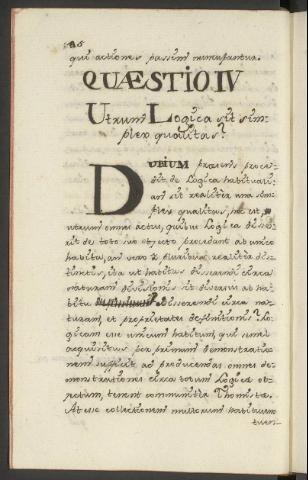 qui actiones passim nuncupantur.
QUÆSTIO IV
Utrum Logica sit sim-
plex qualitas?
DUBIUM præsens proce-
dit de Logica habituali:
an sit realiter una sim-
plex qualitas, hoc est,
utrum omnes actus, quibus Logica disse-
rit de toto suo objecto, procedant ab unico
habitu, an vero a pluribus realiter dis-
tinctis, ita ut habitus disserendi circa
naturam divisionis sit diversus ab ha-
bitu disserendi circa na-
turam, et proprietates definitionis? Lo-
gicam esse unicum habitum, qui semel
acquisitus per primam demonstratio-
nem sufficit ad producendas omnes de-
monstrationes circa totum Logicæ ob-
jectum, tenent communiter Thomistæ.
At esse collectionem multorum habituum
tuen-